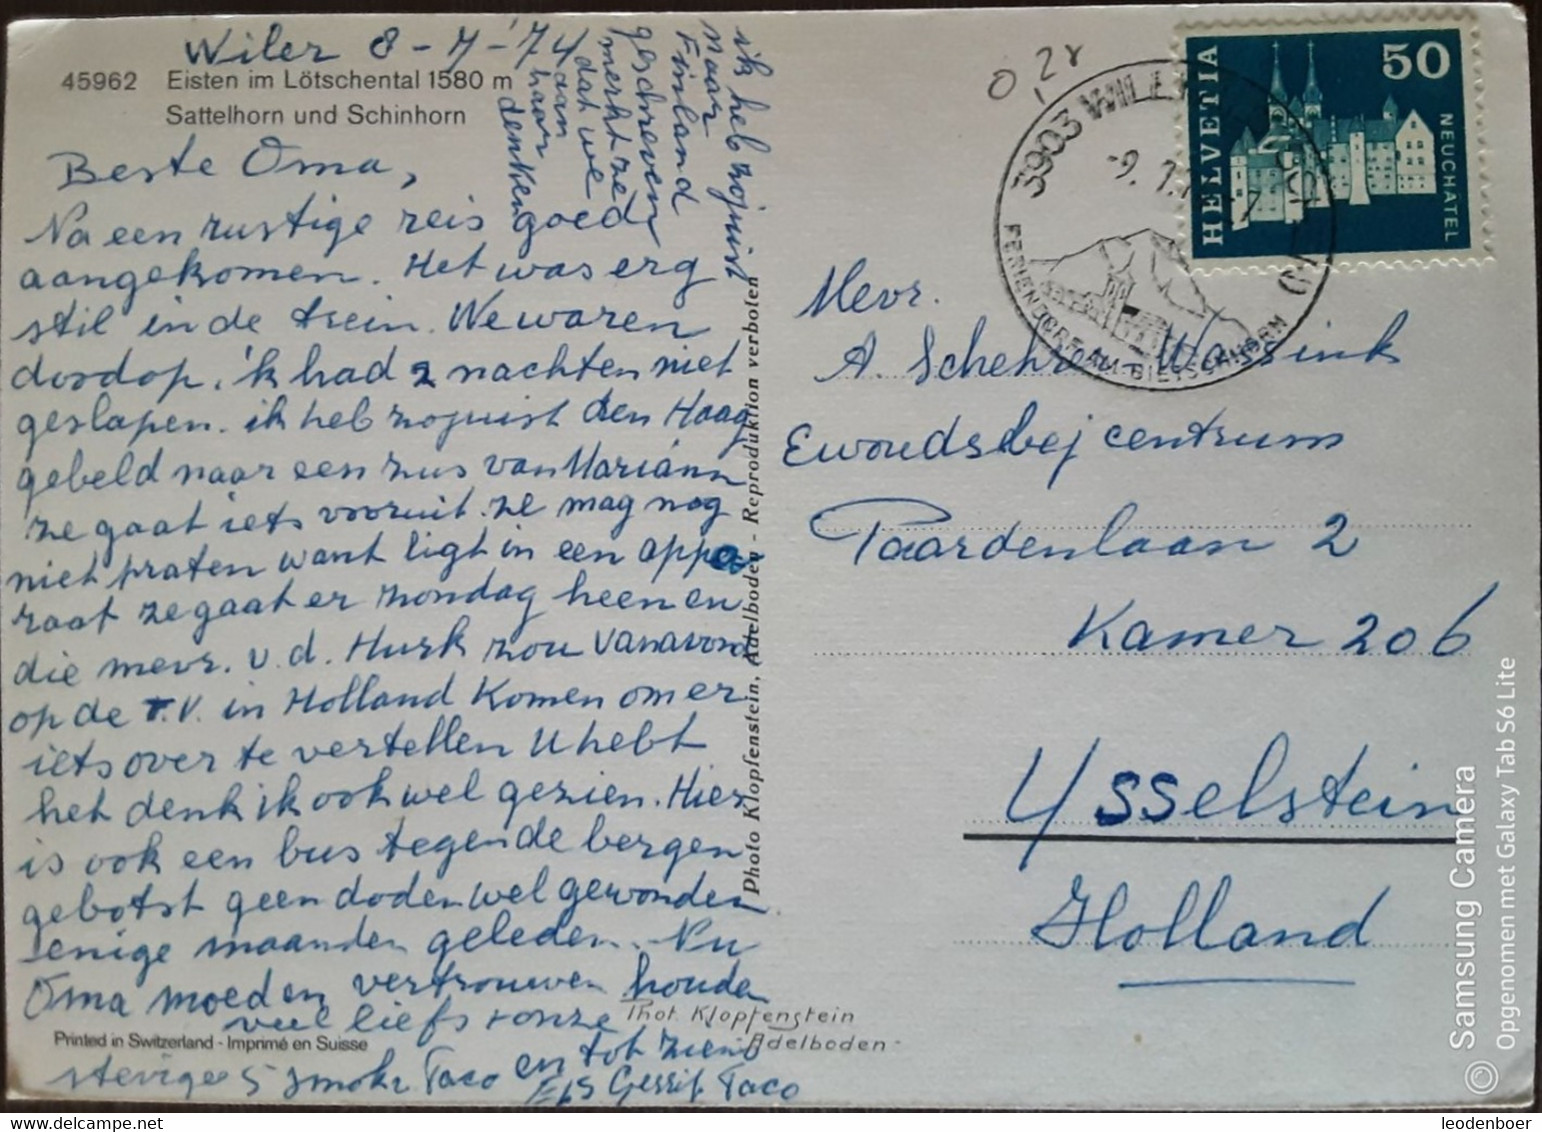 Wiler 8-7-'74
45962 Eisten im Lötschental 1580 m
Sattelhorn und Schinhorn
Beste Oma,
Na een rustige reis goed
aangekomen. Het was erg
stil in de trein. We waren
doodop. 'k had 2 nachten niet
geslapen. ik heb zojuist den Haag
gebeld naar een zus van Mariánn
ze gaat iets vooruit. ze mag nog
niet praten want ligt in een appa
raat ze gaat er zondag heen en
die mevr. v.d. Hurk zou vanavond
op de T.V. in Holland komen om er
iets over te vertellen U hebt
het denk ik ook wel gezien. Hier
is ook een bus tegen de bergen
gebotst geen doden wel gewonden
enige maanden geleden. Nu
Oma moed en vertrouwen houden
veel liefs + onze
stevige 5 Taco en tot ziens
Els Gerrit Taco
ik heb zojuist
naar
Finland
geschreven
merkt ze
dat we
aan
haar
denken
Printed in Switzerland - Imprimé en Suisse
Phot. Klopfenstein
-Adelboden-
Photo Klopfenstein, Adelboden - Reproduktion verboten
3903 WILER (LÖTSCHEN)
FERIENDORF AM BIETSCHHORN
HELVETIA
50
NEUCHATEL
Mevr.
A. Wassink
Ewoudsbej centrum
Paardenlaan 2
Kamer 206
Ysselstein
Holland
© Samsung Camera
Opgenomen met Galaxy Tab S6 Lite
leodenboer